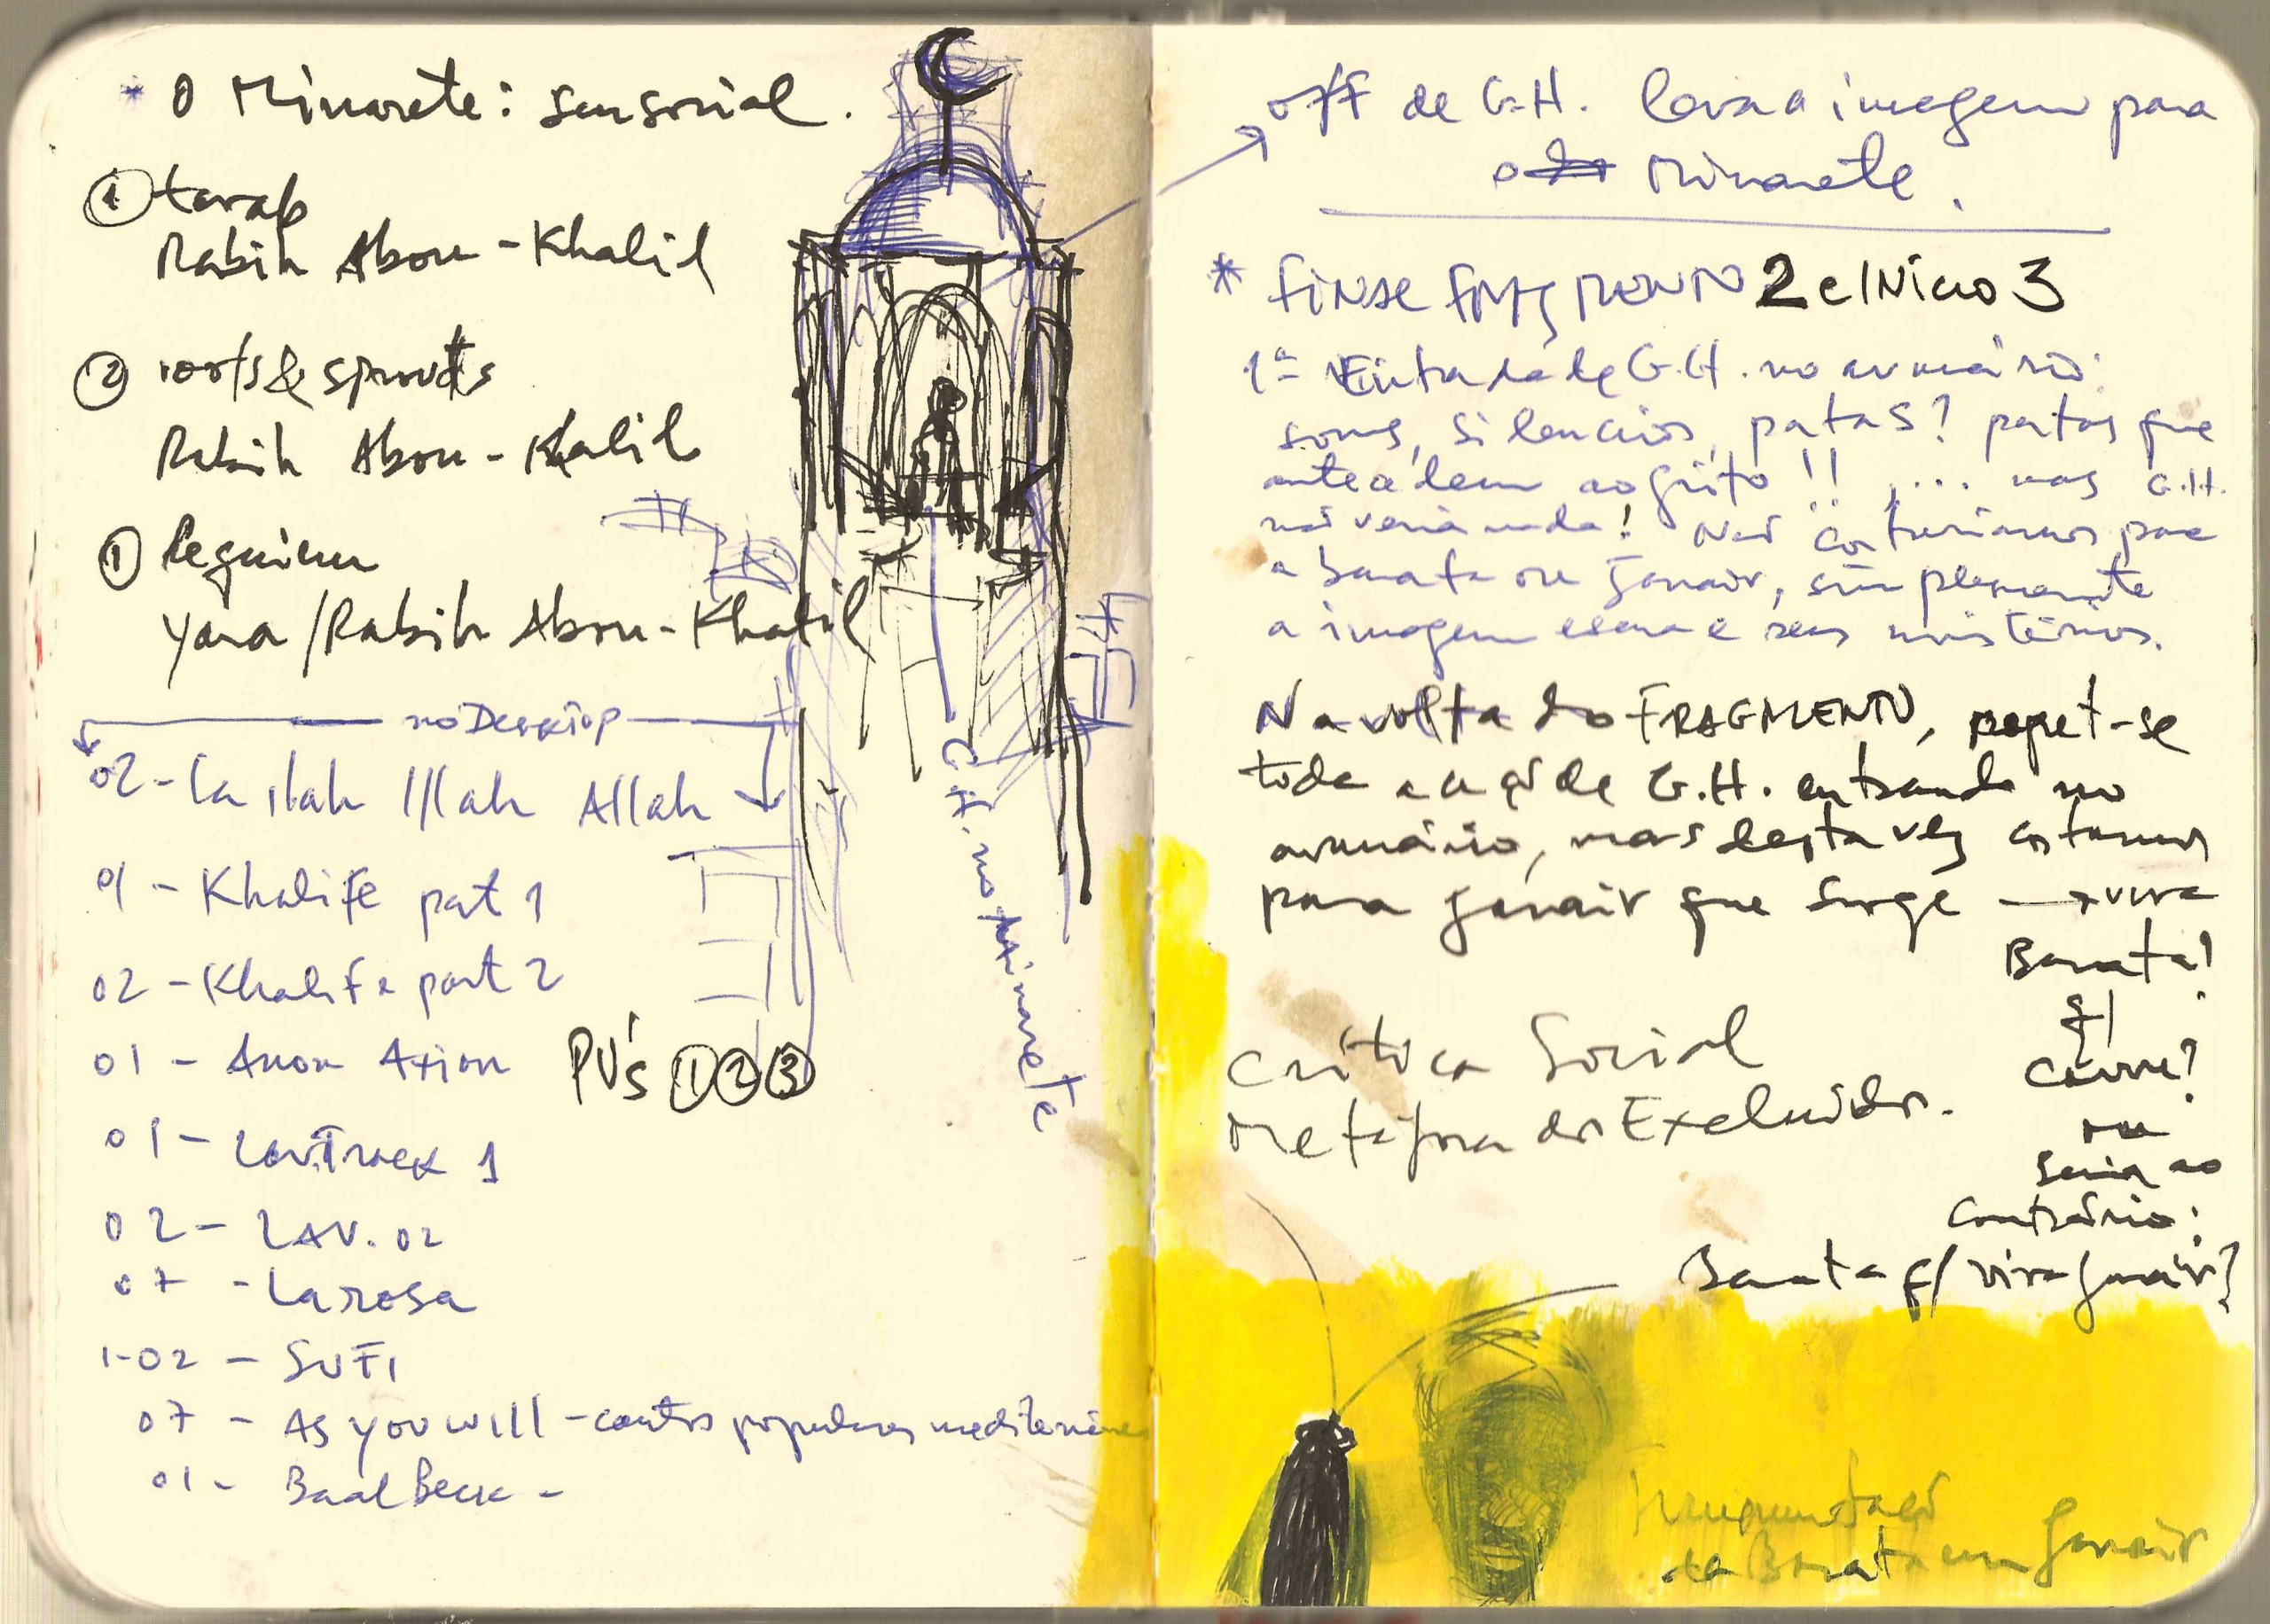 * O Minarete: sensorial.
① tarab
Rabih Abou-Khalil
② roots & sprouts
Rabih Abou-Khalil
① Requiem
Yara / Rabih Abou-Khalil
no Desktop
02 - La ilah Illah Allah
01 - Khalife part 1
02 - Khalife part 2
01 - Anon Axion
PV's ① ② ③
01 - Lav Track 1
02 - LAV. 02
07 - La rosa
1-02 - SUFI
07 - As you will - cantos populares mediterrâneo
01 - Baalbeck -
G.H. no Minarete
off de G.H. leva a imagem para
o Minarete.
* fim de fragmento 2 e INício 3
1ª Entrada de G.H. no armário:
sons, silencios, patas? patas que
antecedem ao grito!! .... mas G.H.
não veria nada! Não cortaríamos para
a barata ou Janair, simplesmente
a imagem escura e seus mistérios.
Na volta do FRAGMENTO, repet-se
toda a ação de G.H. entrando no
armário, mas desta vez cortamos
para Janair que surge → vira
Barata?
q/
Corre?
ou
Seria ao
Contrário:
Barata q/ vira Janair?
Crítica Social
Metáfora dos Excluídos.
da Barata em Janair